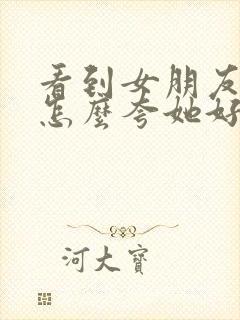 看到女朋友
怎麼夸她好
河大寶